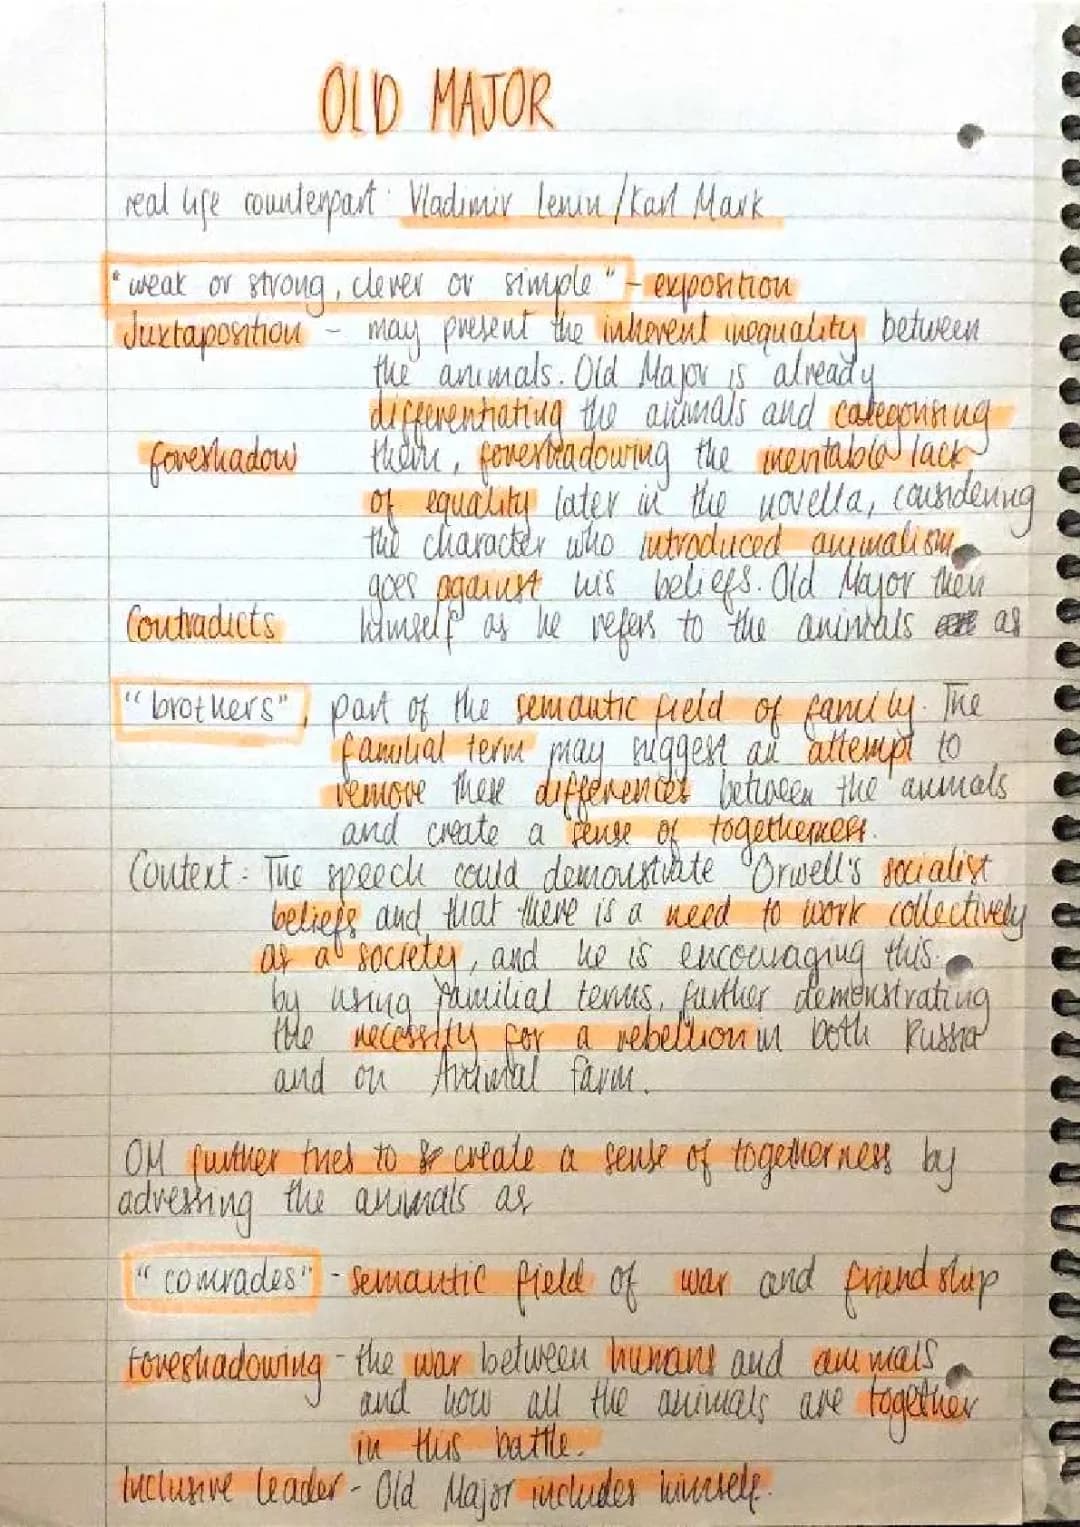 OLD MAJOR
real life counterpart: Vladimir Lenin / Karl Mark
"weak or strong, clever or simple" - exposition
Juxtaposition - may present the inherent inequality between
the animals. Old Major is already
differentiating the animals and categorising
foreshadow them, foreshadowing the inevitable lack
of equality later in the novella, considering
the character who introduced animalism
goes against his beliefs. Old Major then
Contradicts himself as he refers to the animals as
"brothers", part of the semantic field of family. The
familial term may suggest an attempt to
remove these differences between the animals
and create a sense of togetherness.
Context: The speech could demonstrate Orwell's socialist
beliefs and that there is a need to work collectively
as a society, and he is encouraging this
by using familial terms, further demonstrating
the necessity for a rebellion in both Russia
and on Animal Farm.
OM further tries to create a sense of togetherness by
adressing the animals as
"comrades" - semantic field of war and friendship
Foreshadowing - the war between humans and animals
and how all the animals are together
in this battle.
Inclusive leader - Old Major includes himself.